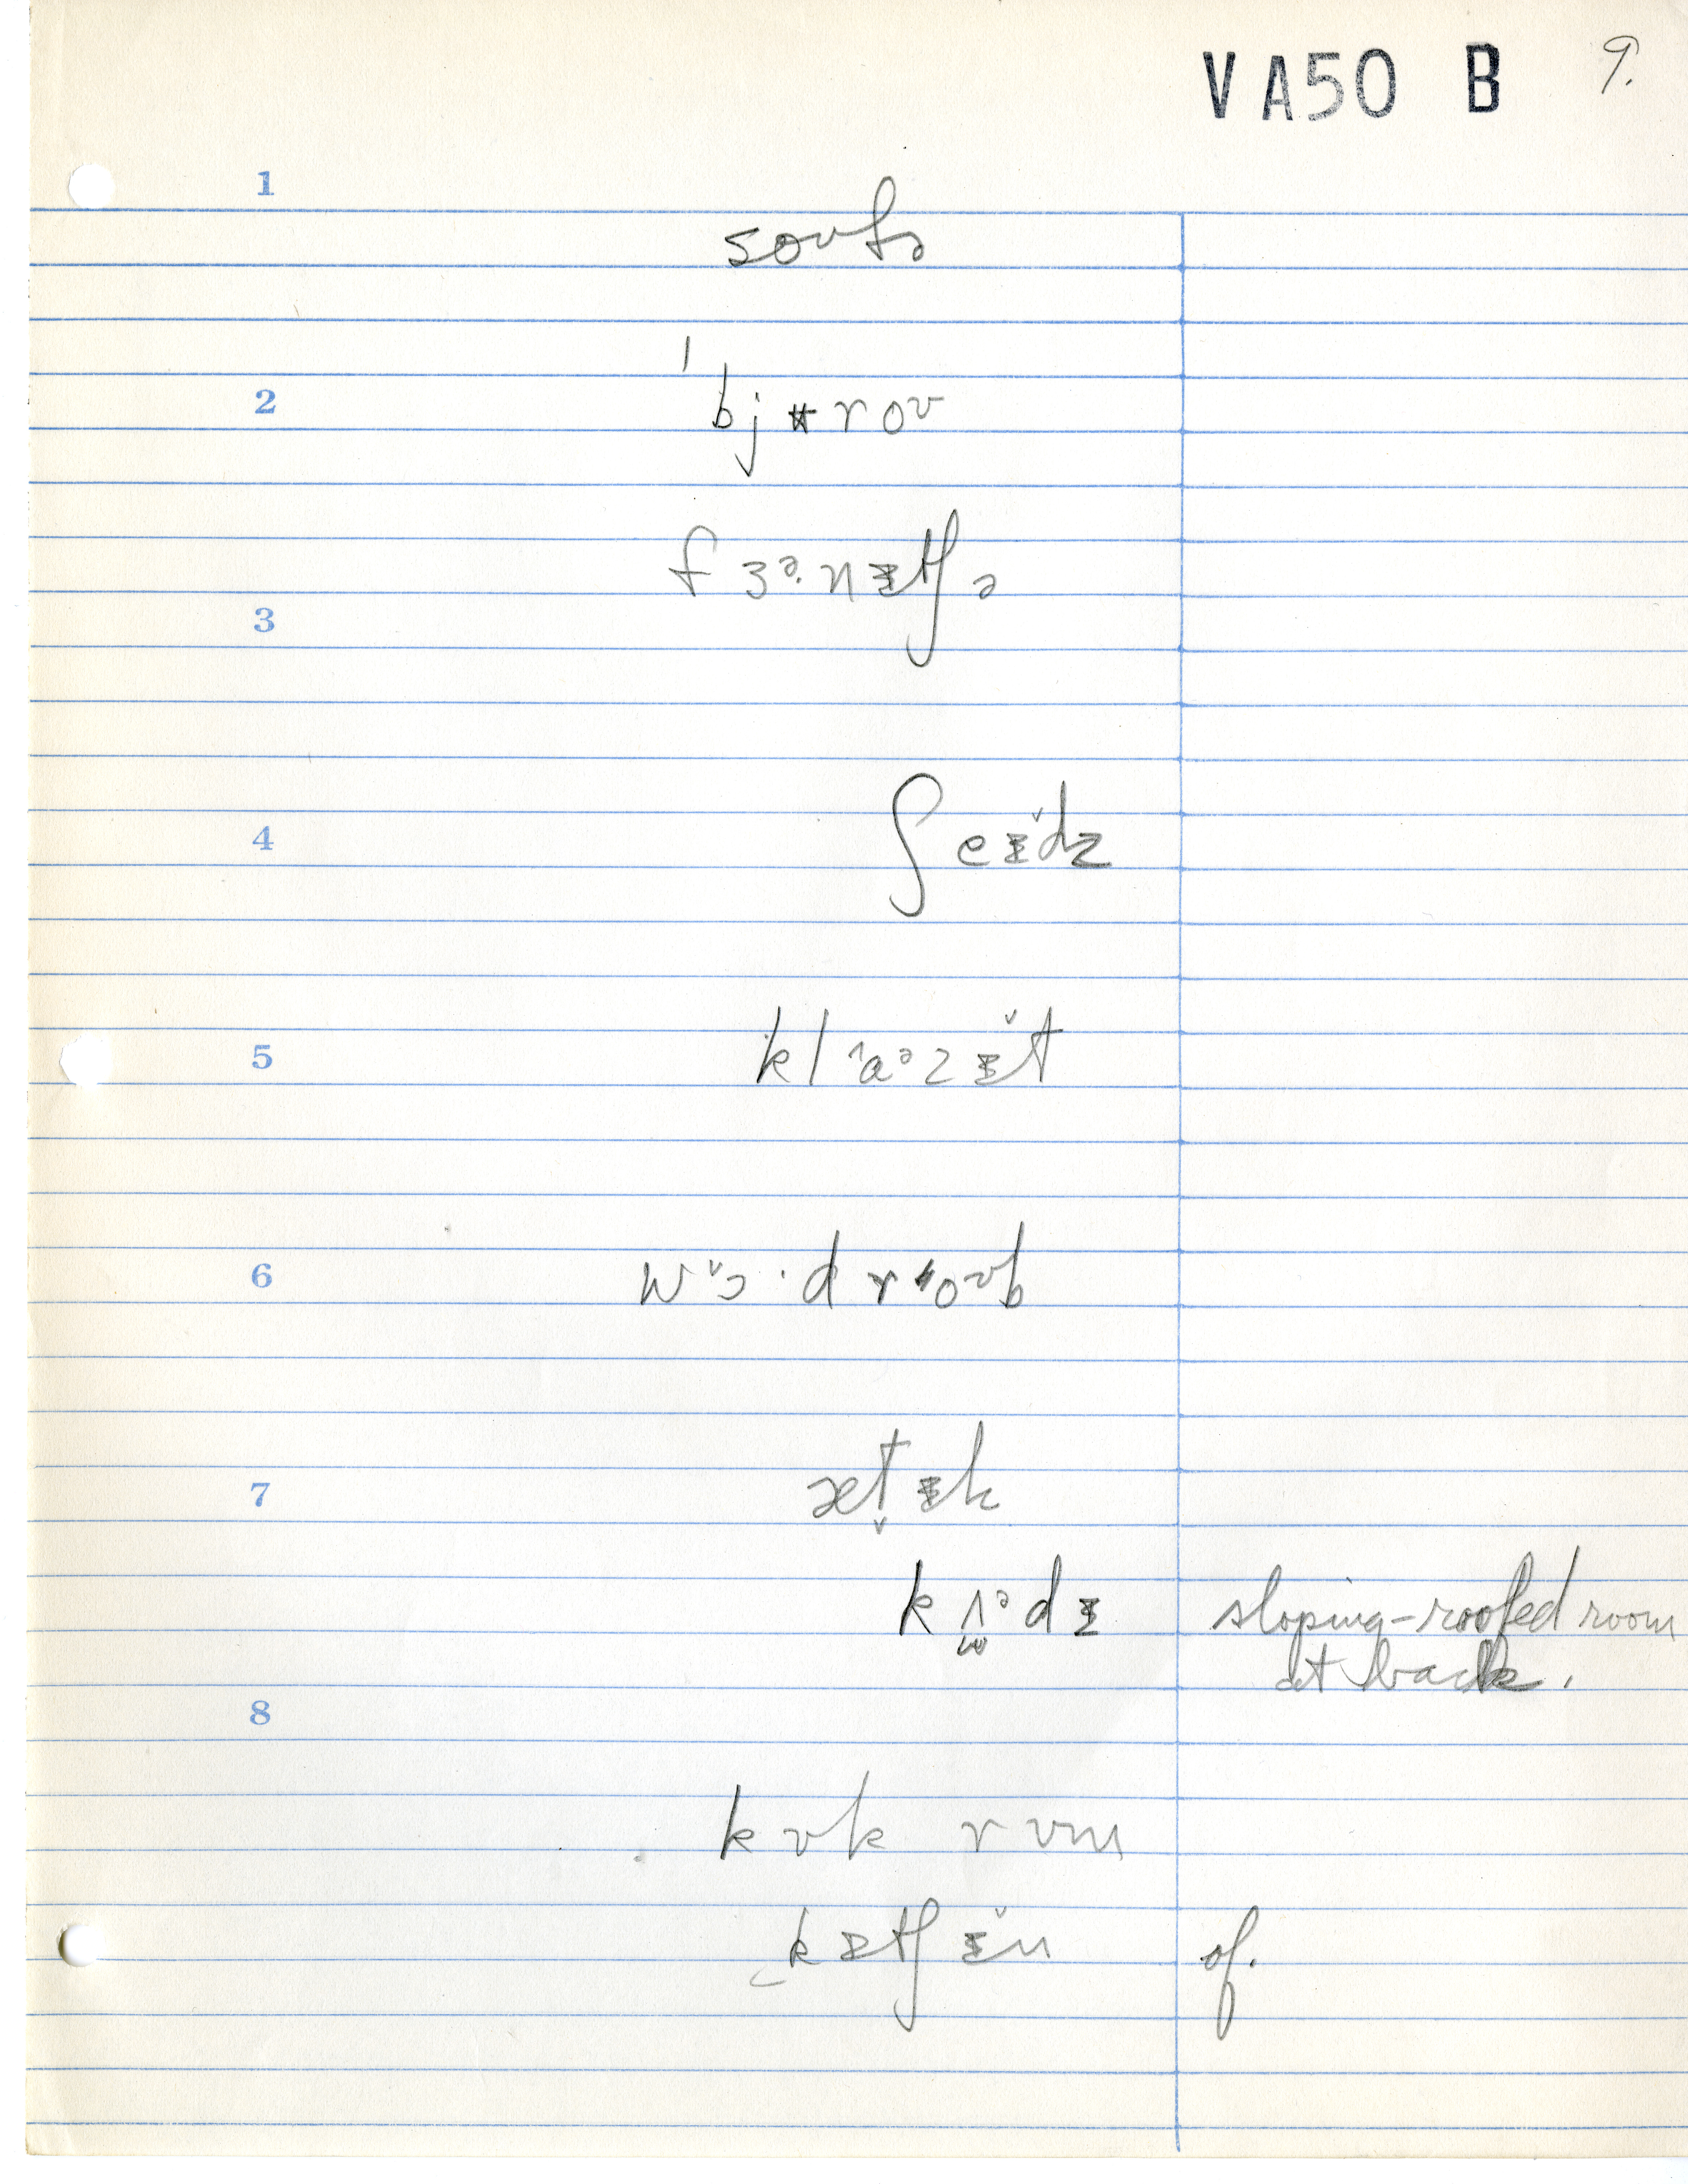 VA50 B 9.
1
soʊfə
2
ˈbjʉroʊ
fɜᵊ·nɪtʃə
3
4 ʃeɪ̌dz
5 klˆaᵊzɪ̌t
6 wˇɔ·drˈoʊb
7 ætɪk
kʌᵊdɪ sloping-roofed room
at back.
8
kʊk rʊm
kɪtʃɪ̌n of.